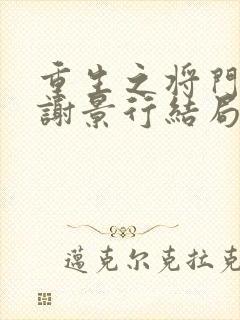 重生之将門
謝景行結局
邁克尔克拉克